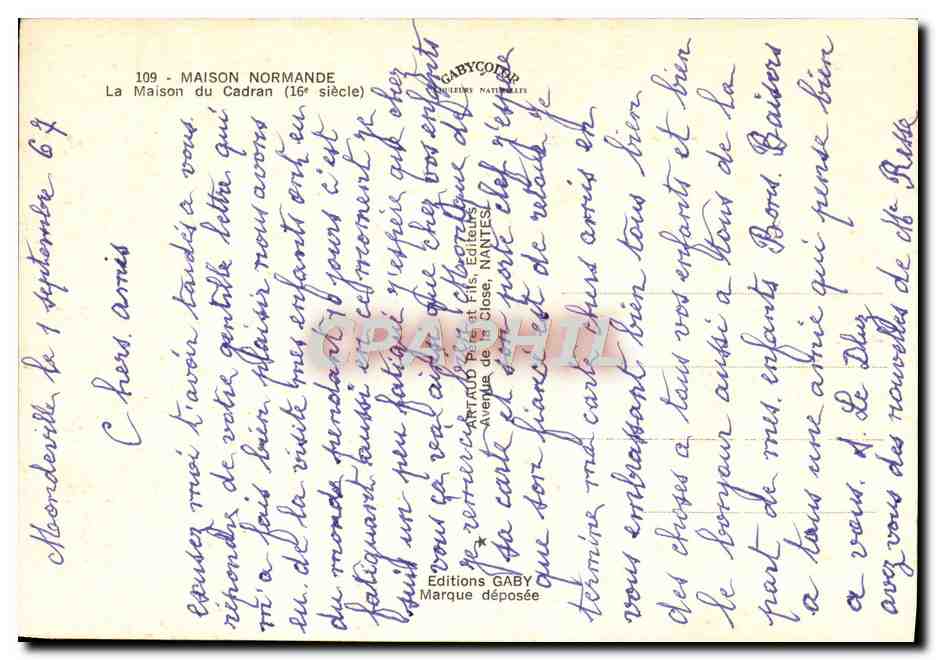 109 - MAISON NORMANDE
La Maison du Cadran (16e siècle)
GABYCOLOR
COULEURS NATURELLES
ARTAUD Père et Fils, Editeurs
Avenue de la Close, NANTES
Editions GABY
Marque déposée
CPARAPHIL
Mondeville le 1 septembre 67
Chers. amis
escusez moi t'avoir tardés a vous
répondre de votre gentille lettre qui
m'a fais bien plaisir nous avons
eu. de la visite mes enfants ont eu
du monde pendant 8 jours c'est
fatiguant aussi ce moment je
suis un peu fatigué j'espère que chez
vous ça va ainsi que chez vos enfants
je remercie bien de
sa carte et son porte clef j'espère
que son fiancé est de retour je
termine ma carte chers amis en
vous embrassant bien tous bien
des choses a tous vos enfants et bien
le bonjour aussi a tous de la
part de mes. enfants Bons. Baisers
a tous une amie qui pense bien
a vous. S. Le Duz
avez vous des nouvelles de Mr Resse